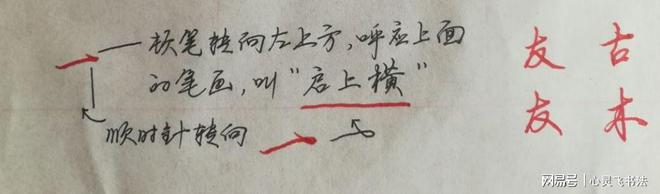 顿笔转向左上方，呼应上面
的笔画，叫“启上横”
顺时针转向
友 古
友 木
网易号 | 心灵飞书法